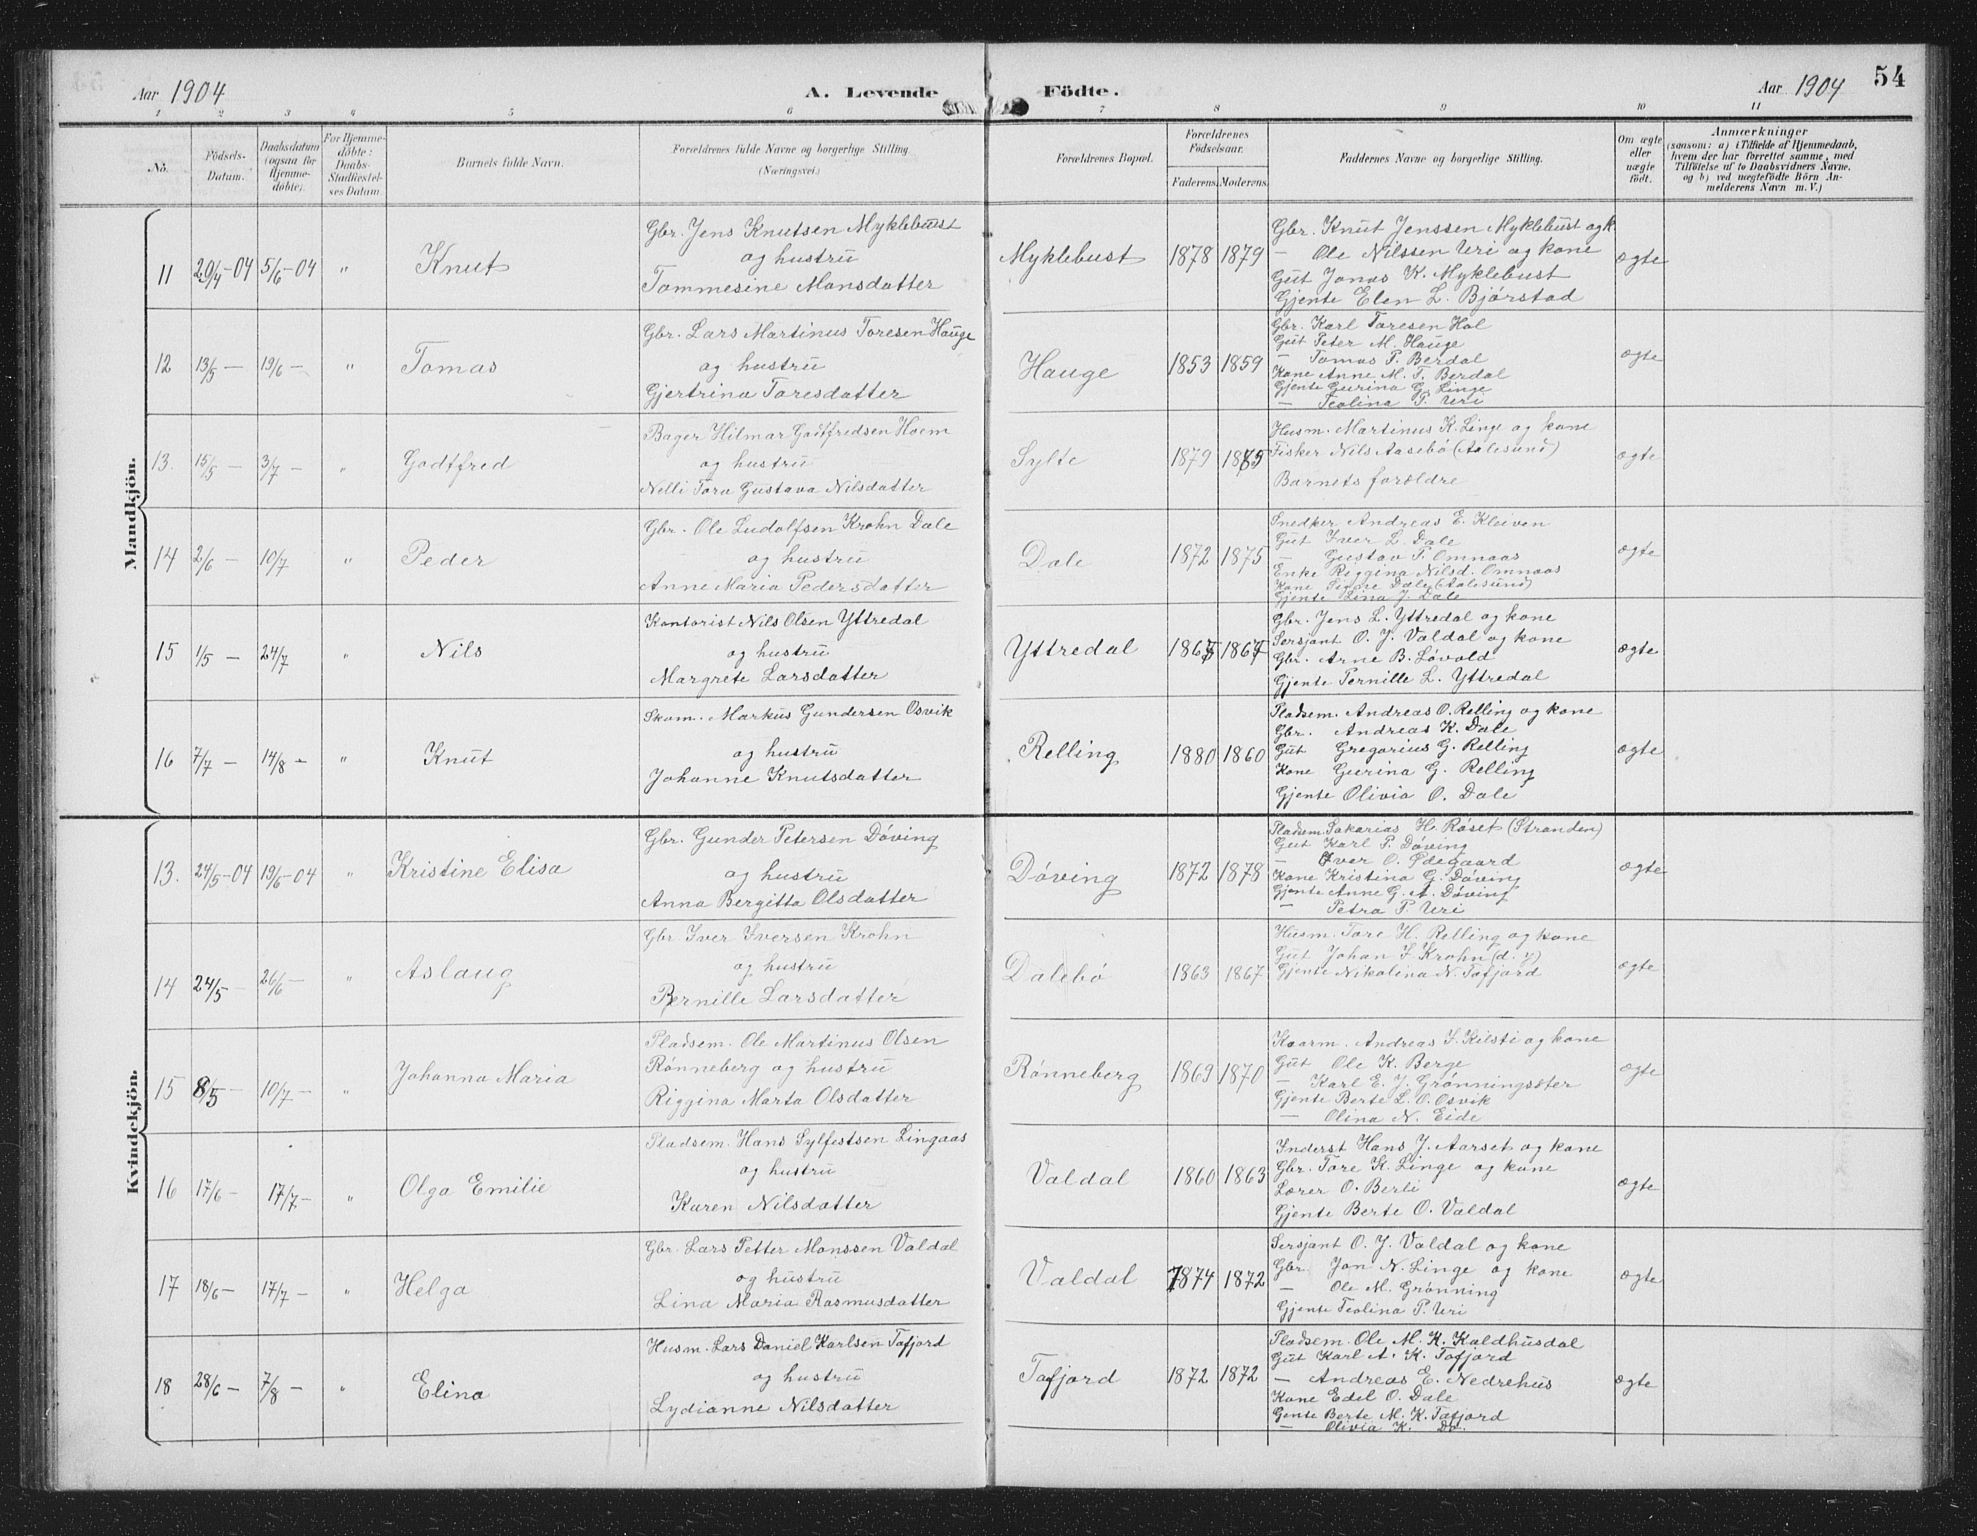 Aar 1904
A. Levende
Födte.
Aar 1904
54
1 2 3 4 5 6 7 8 9 10 11
No.
Födsels-Datum.
Daabsdatum (ogsaa for Hjemmedöbte).
For Hjemmedöbte: Daabs-Stadfæstelses Datum.
Barnets fulde Navn.
Forældrenes fulde Navne og borgerlige Stilling (Næringsvei.)
Forældrenes Bopæl.
Forældrenes Födselsaar.
Faderens. Moderens.
Faddernes Navne og borgerlige Stilling.
Om ægte eller uægte födt.
Anmærkninger
(saasom: a) i Tilfælde af Hjemmedaab, hvem der har forrettet samme, med Tilföielse af to Daabsvidners Navne, og b) ved uægtefödte Börn Anmelderens Navn m. V.)
Mandkjön.
11 29/4-04 5/6-04 " Knut
Gbr. Jens Knutsen Myklebust
og hustru
Tommesine Monsdatter
Myklebust 1878 1879
Gbr. Knut Jenssen Myklebust og k
— Ole Nilssen Uri og kone
Gut Jonas K. Myklebust
Gjente Elen L. Bjørstad
ægte
12 13/5 — 19/6 — " Tomas
Gbr. Lars Martinus Toresen Hauge
og hustru
Gjertrina Toresdatter
Hauge 1853 1859
Gbr. Karl Toresen Hol
Gut Peter M. Hauge
— Tomas P. Berdal
Kone Anne M. T. Berdal
Gjente Gurina G. Linge
— Teolina P. Uri
ægte
13. 15/5 — 3/7 — " Godtfred
Bager Hilmar Godtfredsen Hoem
og hustru
Nelli Tora Gustava Nilsdatter
Sylte 1879 1885
Husm. Martinus K. Linge og kone
Fisker Nils Aasebø (Aalesund)
Barnets forældre
ægte
14 2/6 — 10/7 " Peder
Gbr. Ole Ludolfsen Krohn Dale
og hustru
Anne Maria Pedersdatter
Dale 1872 1875
Snedker Andreas E. Kleiven
Gut Iver L. Dale
— Gustav P. Omnaas
Enke Riggina Nilsd. Omnaas
Kone Signe Dale (Aalesund)
Gjente Lina J. Dale
ægte
15 1/5 — 24/7 " Nils
Kontorist Nils Olsen Yttredal
og hustru
Margrete Larsdatter
Yttredal
Gbr. Jens L. Yttredal og kone
Sersjant O. J. Valdal og kone
Gbr. Arne B. Løvold
Gjente Pernille L. Yttredal
ægte
16 7/7 — 14/8 — " Knut
Skom. Markus Gundersen Osvik
og hustru
Johanne Knutsdatter
Relling 1880 1860
Pladsem. Andreas O. Relling og kone
Gbr. Andreas K. Dale
Gut Gregorius G. Relling
Kone Gurina G. Relling
Gjente Olivia O. Dale
ægte
Kvindekjön.
13. 24/5-04 19/6-04 " Kristine Elisa
Gbr. Gunder Petersen Døving
og hustru
Anna Bergitta Olsdatter
Døving 1872 1878
Pladsem. Sakarias H. Røset (Stranden)
Gut Karl P. Døving
— Iver O. Ødegaard
Kone Kristina G. Døving
Gjente Anne G. A. Døving
— Petra P. Uri
ægte
14 24/5 — 26/6 — " Aslaug
Gbr Iver Iversen Krohn
og hustru
Pernille Larsdatter
Dalebø 1863 1867
Husm. Tore H. Relling og kone
Gut Johan I Krohn (d. y)
Gjente Nikolina N. Tafjord
ægte
15 8/5 10/7 — " Johanna Maria
Pladsem. Ole Martinus Olsen
Rønneberg og hustru
Riggina Marta Olsdatter
Rønneberg 1869 1870
Kaarm. Andreas I. Kilsti og kone
Gut Ole K. Berge
— Karl E. J. Grønningsæter
Gjente Berte L. O. Osvik
— Olina N. Eide
ægte
16 17/6 — 17/7 — " Olga Emilie
Pladsem. Hans Sylfestsen Lingaas
og hustru
Karen Nilsdatter
Valdal 1860 1863
Inderst Hans J. Aarset og kone
Gbr. Tore K. Linge og kone
Lærer O. Berli
Gjente Berte O. Valdal
ægte
17 18/6 — 17/7 — " Helga
Gbr. Lars Petter Monssen Valdal
og hustru
Lina Maria Rasmusdatter
Valdal 1874 1872
Sersjant O. J. Valdal og kone
Gbr. Jon N. Linge og kone
— Ole M. Grønning
Gjente Teolina P. Uri
ægte
18 28/6 — 7/8 — " Elina
Husm. Lars Daniel Karlsen Tafjord
og hustru
Lydianne Nilsdatter
Tafjord 1872 1872
Pladsem. Ole M. K. Kaldhusdal
Gut Karl A. K. Tafjord
— Andreas E. Nedrehus
Kone Edel O. Dale
Gjente Berte M. K. Tafjord
— Olivia K. Do.
ægte